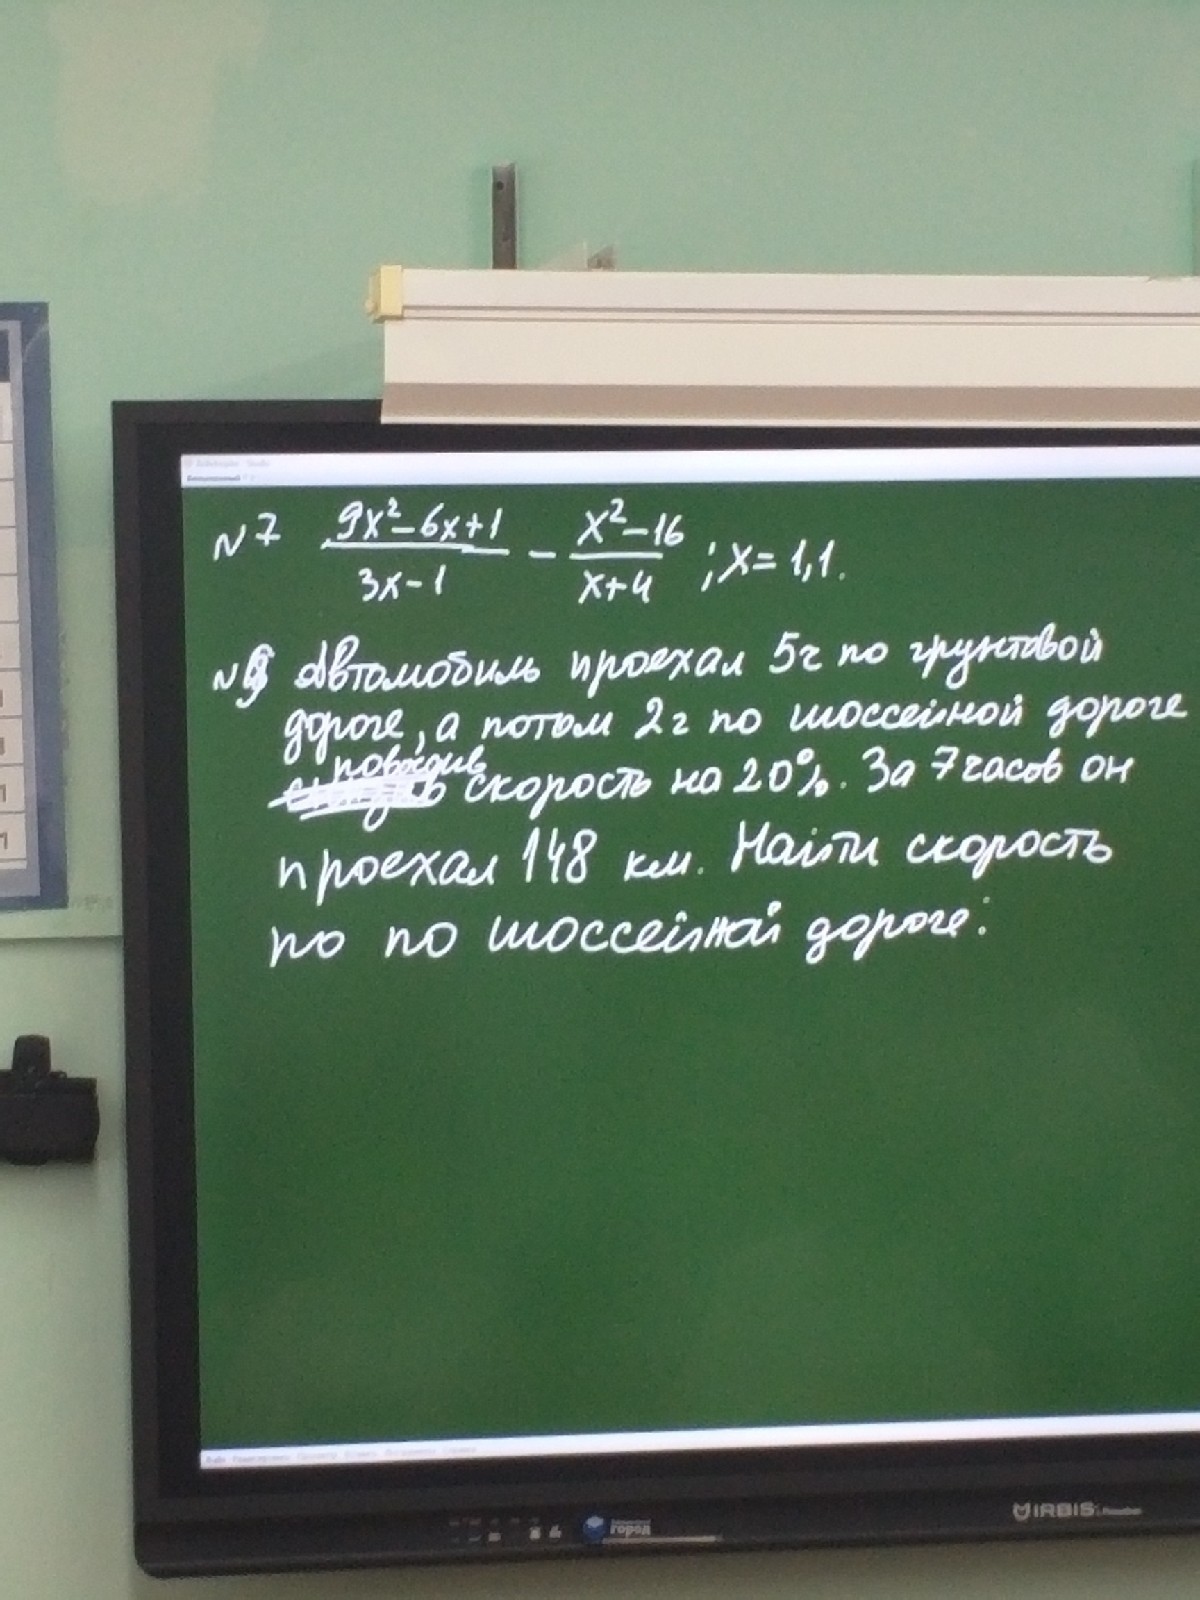 N7 (9x²-6x+1)/(3x-1) - (x²-16)/(x+4) ; x=1,1.
N8 Автомобиль проехал 5ч по грунтовой
дороге, а потом 2ч по шоссейной дороге
повысив
скорость на 20%. За 7 часов он
проехал 148 км. Найти скорость
по по шоссейной дороге.
IRBIS
город